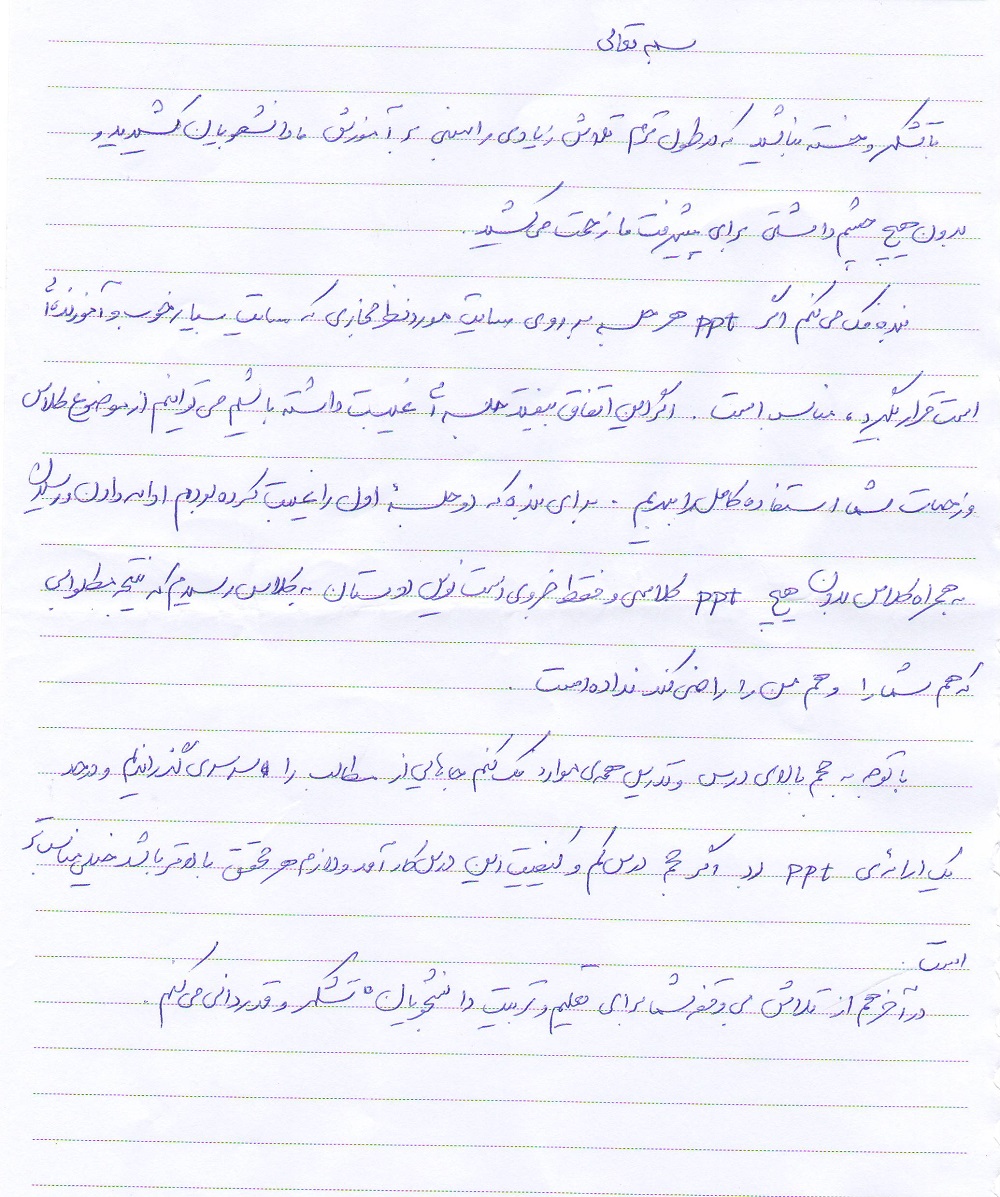 بسمه تعالی
با تشکر و خسته نباشید که در طول ترم تلاش زیادی را مبنی بر آموزش ما دانشجویان کشیدید و
بدون هیچ چشم داشتی برای پیشرفت ما زحمت می کشید.
بنده فکر می کنم اگر ppt هر جلسه بر روی سایت مورد نظر مجازی که سایت بسیار خوب و آموزنده ای
است قرار بگیرد، مناسب است. اگر این اتفاق بیفتد جلسه ای غیبت داشته باشیم می توانیم از موضوع کلاس
و زحمات شما استفاده کامل را ببریم. برای بنده که دو جلسه اول را غیبت کرده بودم ادامه دادن و رسیدن
به همراه کلاس بدون هیچ ppt کلاسی و فقط جزوی دست نویس دوستان به کلاس رسیدم که نتیجه مطلوبی
که هم شما را و هم من را راضی کند نداده است.
با توجه به حجم بالای درس و تدریس همه ی موارد فکر کنم جاهایی از مطالب را سرسری گذراندیم و در حد
یک ارائه ی ppt بود اگر حجم درس کم و کیفیت این درس کارآمد و لازم هر محقق بالاتر باشد خیلی مناسب تر
است.
در آخر هم از تلاش بی وقفه شما برای تعلیم و تربیت دانشجویان تشکر و قدردانی می کنم.